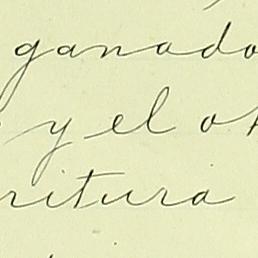 ganado
y el o
ritura